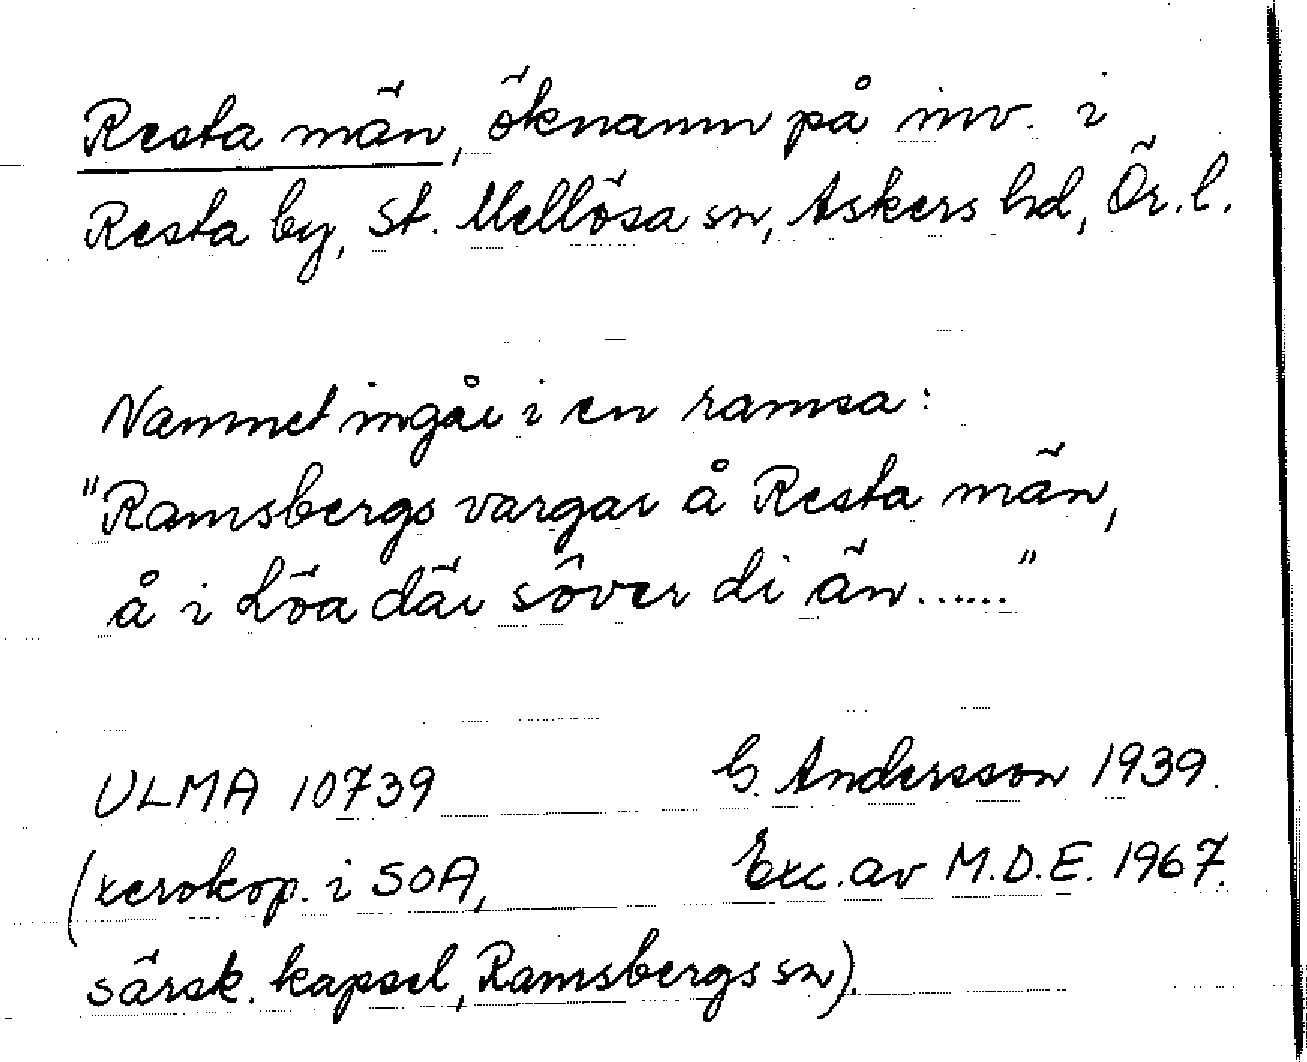 Resta män, öknamn på inv. i
Resta by, St. Mellösa sn, Askers hd, Ör. l.
Namnet ingår i en ramsa:
"Ramsbergs vargar å Resta män,
å i Löa där sôver di än......"
ULMA 10739 G. Andersson 1939.
(xerokop. i SOA, Exc. av M.D.E. 1967.
särsk. kapsel, Ramsbergs sn).